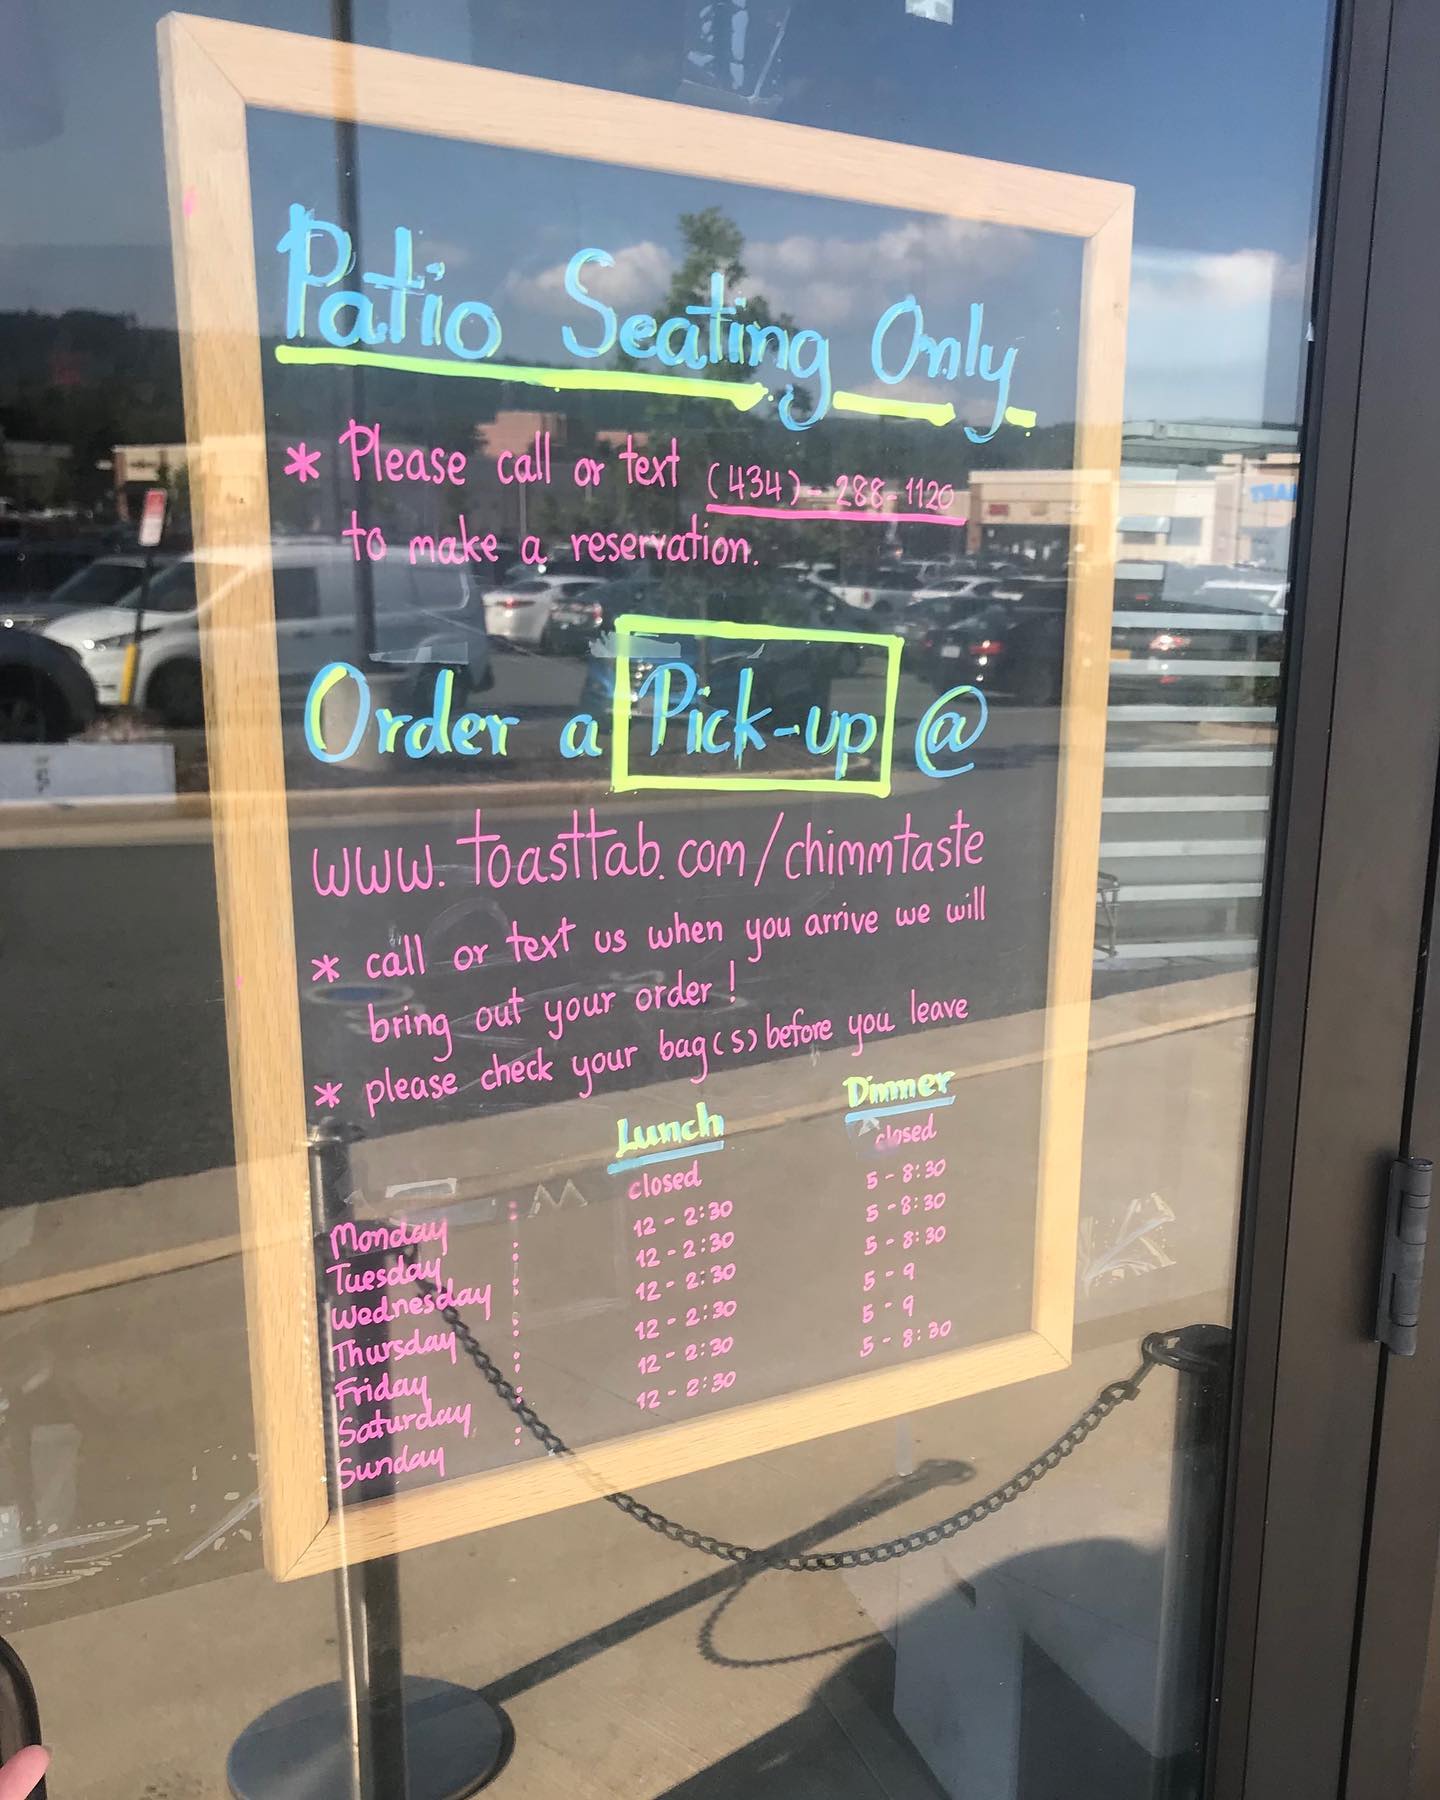 Patio Seating Only
* Please call or text (434)-288-1120
to make a reservation.
Order a Pick-up @
www.toasttab.com/chimmtaste
* call or text us when you arrive we will
bring out your order!
* please check your bag(s) before you leave
Lunch Dinner
Monday : closed closed
Tuesday : 12-2:30 5-8:30
Wednesday : 12-2:30 5-8:30
Thursday : 12-2:30 5-8:30
Friday : 12-2:30 5-9
Saturday : 12-2:30 5-9
Sunday : 12-2:30 5-8:30